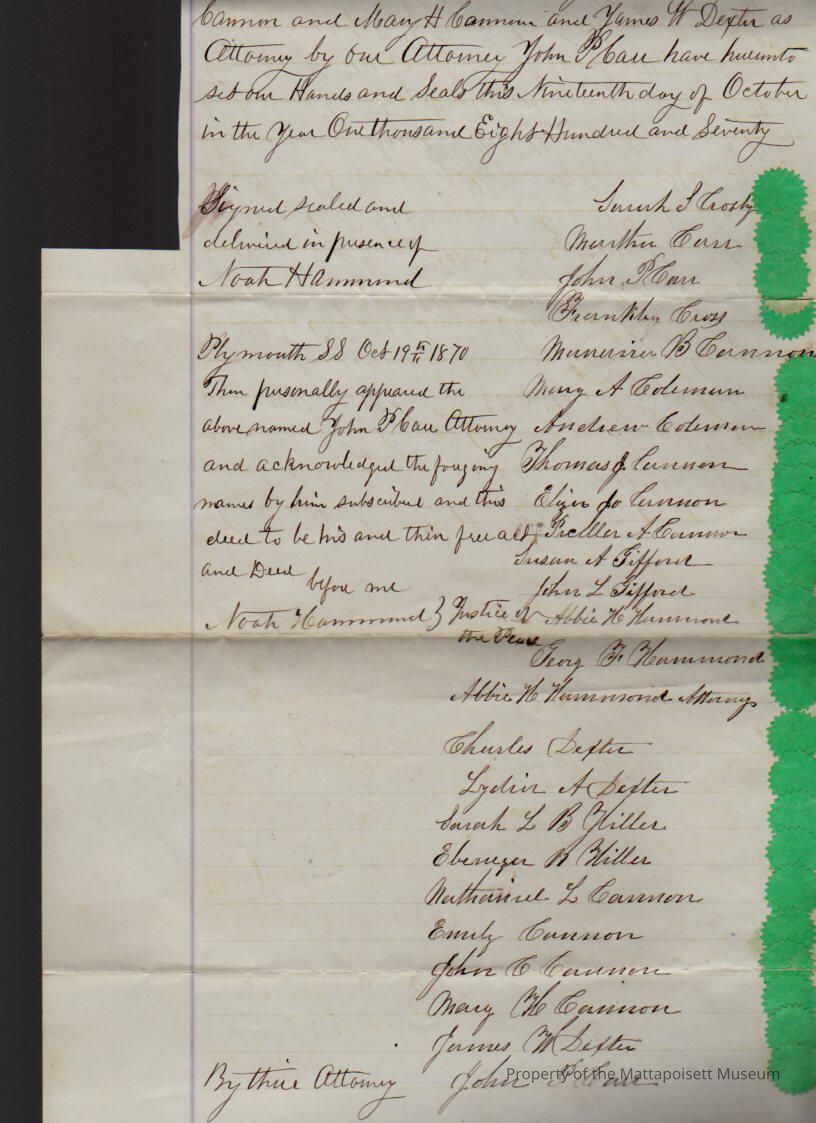 Cannon and Mary H Cannon and James W Dexter as
Attorney by our Attorney John P Carr have hereunto
set our Hands and Seals this Nineteenth day of October
in the Year One thousand Eight Hundred and Seventy
Signed sealed and
delivered in presence of
Noah Hammond
Sarah S Crosby
Martha Carr
John P Carr
Franklin Cross
B Cannon
Mary A Coleman
Andrew Coleman
Thomas J Cannon
Cannon
A Cannon
Susan A Gifford
John L Gifford
Abbie H Hammond
Georg F Hammond
Abbie H Hammond Attorney
Plymouth SS Oct 19th 1870
Then personally appeared the
above named John P Carr Attorney
and acknowledged the forgoing
names by him subscribed and this
deed to be his and their free act
and Deed
before me
Noah Hammond } Justice of
the Peace
Charles Dexter
Lydia A Dexter
Sarah L B Hiller
Ebenezer R Hiller
Nathaniel L Cannon
Emily Cannon
John C Cannon
Mary H Cannon
James W Dexter
By thire Attorney John P Carr
Property of the Mattapoisett Museum